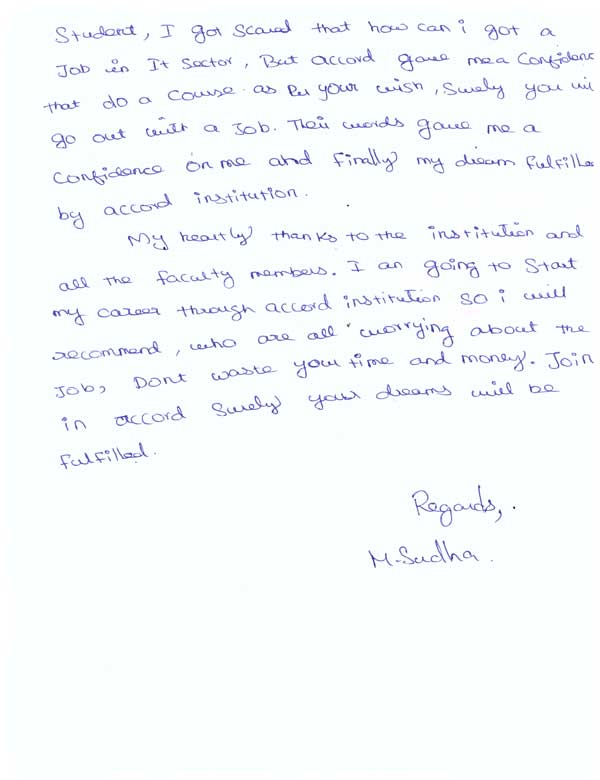 Student, I got scared that how can i got a
Job in It Sector, But accord gave me a Confidenc
that do a course as per your wish, Surely you wil
go out with a Job. Their words gave me a
Confidence on me and Finally my dream Fulfille
by accord institution.
My heartly thanks to the institution and
all the faculty members. I an going to Start
my career through accord institution so i will
recommend, who are all worrying about the
Job, Dont waste your time and money. Join
in accord Surely your dreams will be
fulfilled.
Regards,
M. Sudha.